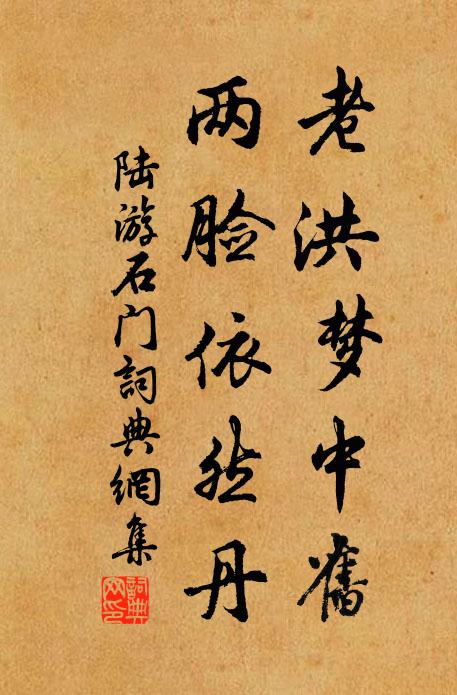 老洪梦中舊
两脸依然丹
陆游石门詞典網集
詞典網印